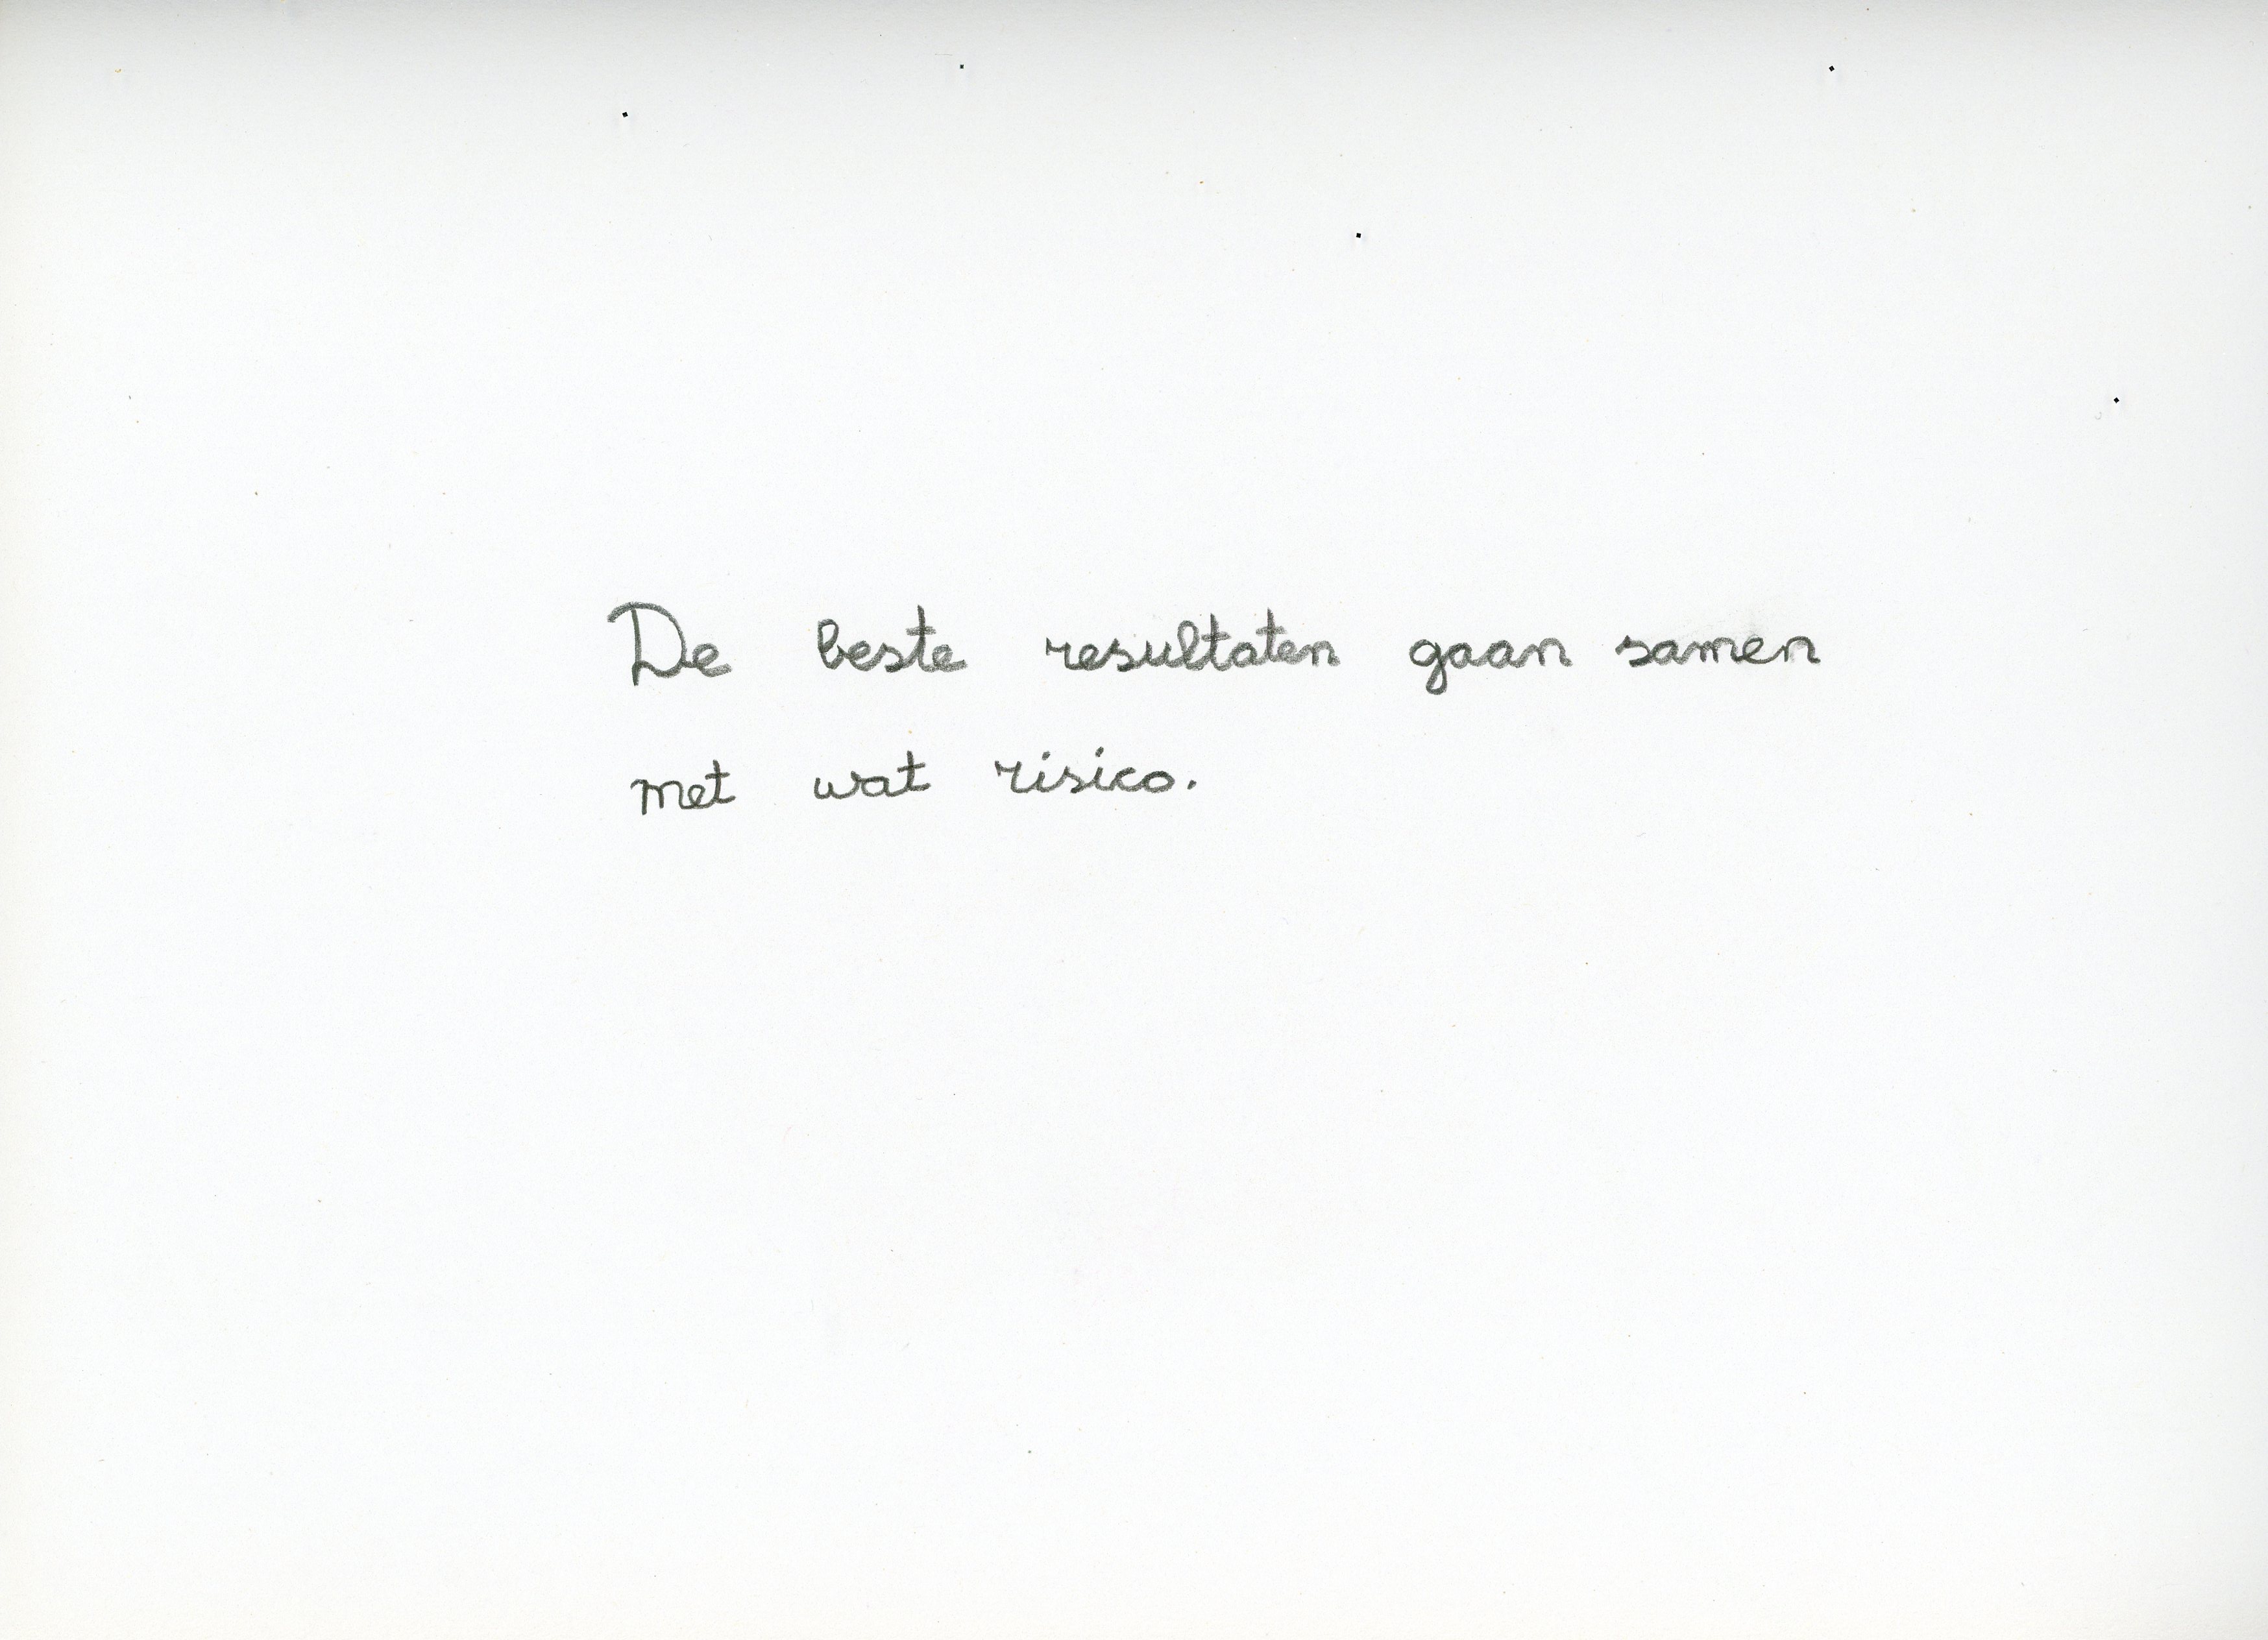 De beste resultaten gaan samen
met wat risico.